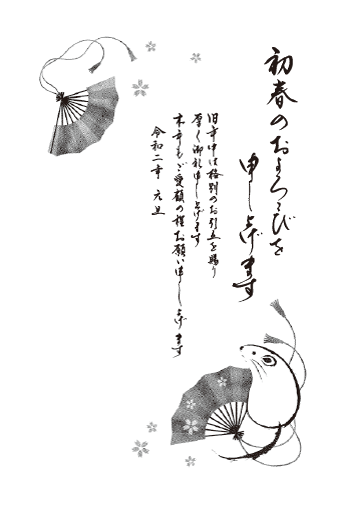 初春のおよろこびを
申し上げます
旧年中は格別のお引立を賜り
厚く御礼申し上げます
本年もご愛顧の程お願い申し上げます
令和二年 元旦